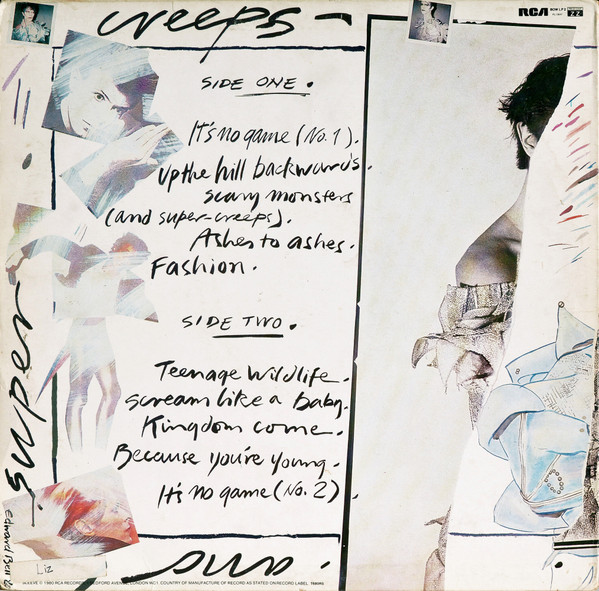 creeps
RCA
BOW LP 2
SIDE ONE.
It's no game (No. 1).
Up the hill backwards.
scary monsters
(and super-creeps).
Ashes to ashes.
Fashion.
SIDE TWO.
Teenage Wildlife.
scream like a baby.
Kingdom come.
Because you're young.
It's no game (No. 2).
super
and
Liz
© 1980 RCA RECORDS, BEDFORD AVENUE, LONDON WC1. COUNTRY OF MANUFACTURE OF RECORD AS STATED ON RECORD LABEL